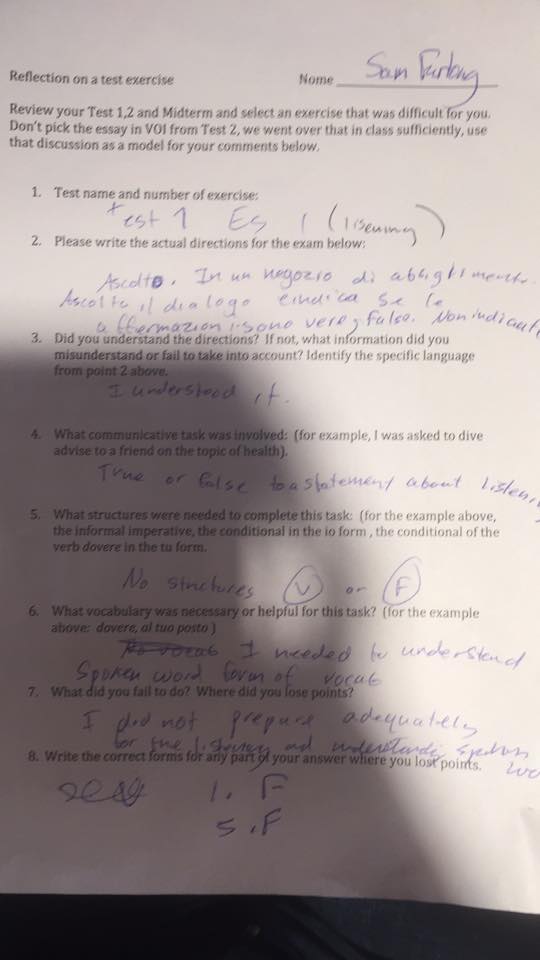 Sam Furlong
Reflection on a test exercise Nome
Review your Test 1,2 and Midterm and select an exercise that was difficult for you.
Don't pick the essay in VOI from Test 2, we went over that in class sufficiently, use
that discussion as a model for your comments below.
1. Test name and number of exercise:
test 1 Es 1 (lisening)
2. Please write the actual directions for the exam below:
Ascolto. In un negozio di
Ascolta il dialogo e indica se le
affermazioni sono vere, false. Non
3. Did you understand the directions? If not, what information did you
misunderstand or fail to take into account? Identify the specific language
from point 2 above.
I understood it.
4. What communicative task was involved: (for example, I was asked to dive
advise to a friend on the topic of health).
True or false to a statement about
5. What structures were needed to complete this task: (for the example above,
the informal imperative, the conditional in the io form , the conditional of the
verb dovere in the tu form.
No structures V or F
6. What vocabulary was necessary or helpful for this task? (for the example
above: dovere, al tuo posto )
I needed to understand
Spoken word form of vocab
7. What did you fail to do? Where did you lose points?
I did not prepare adequately
for the listening and understanding spoken
8. Write the correct forms for any part of your answer where you lost points.
1. F
5. F